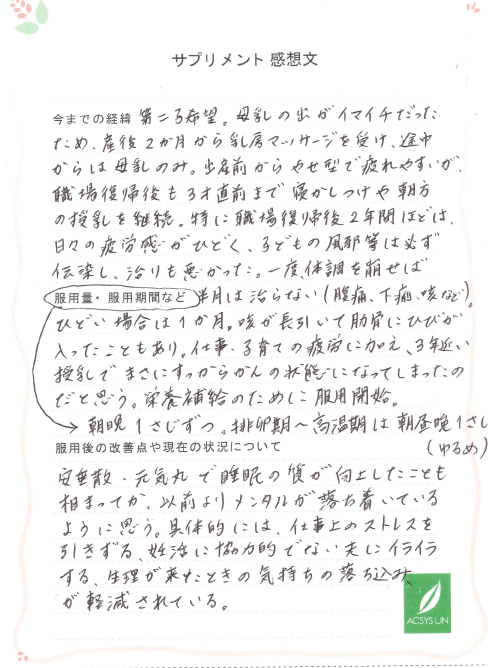 サプリメント 感想文
今までの経緯 第二子希望。母乳の出がイマイチだった
ため、産後2か月から乳房マッサージを受け、途中
からは母乳のみ。出産前からやせ型で疲れやすいが、
職場復帰後も3才直前まで寝かしつけや朝方
の授乳を継続。特に職場復帰後2年間ほどは、
日々の疲労感がひどく、子どもの風邪等は必ず
伝染し、治りも悪かった。一度体調を崩せば
服用量・服用期間など 半月は治らない(腹痛、下痢、咳など)。
ひどい場合は1か月。咳が長引いて肋骨にひびが
入ったこともあり。仕事・子育ての疲労に加え、3年近い
授乳でまさにすっからかんの状態になってしまったの
だと思う。栄養補給のために服用開始。
朝晩1さじずつ。排卵期〜高温期は朝昼晩1さじ
(ゆるめ)
服用後の改善点や現在の状況について
安垂散・元気丸で睡眠の質が向上したことも
相まってか、以前よりメンタルが落ち着いている
ように思う。具体的には、仕事上のストレスを
引きずる、妊活に協力的でない夫にイライラ
する、生理が来たときの気持ちの落ち込み、
が軽減されている。
ACSYSUN